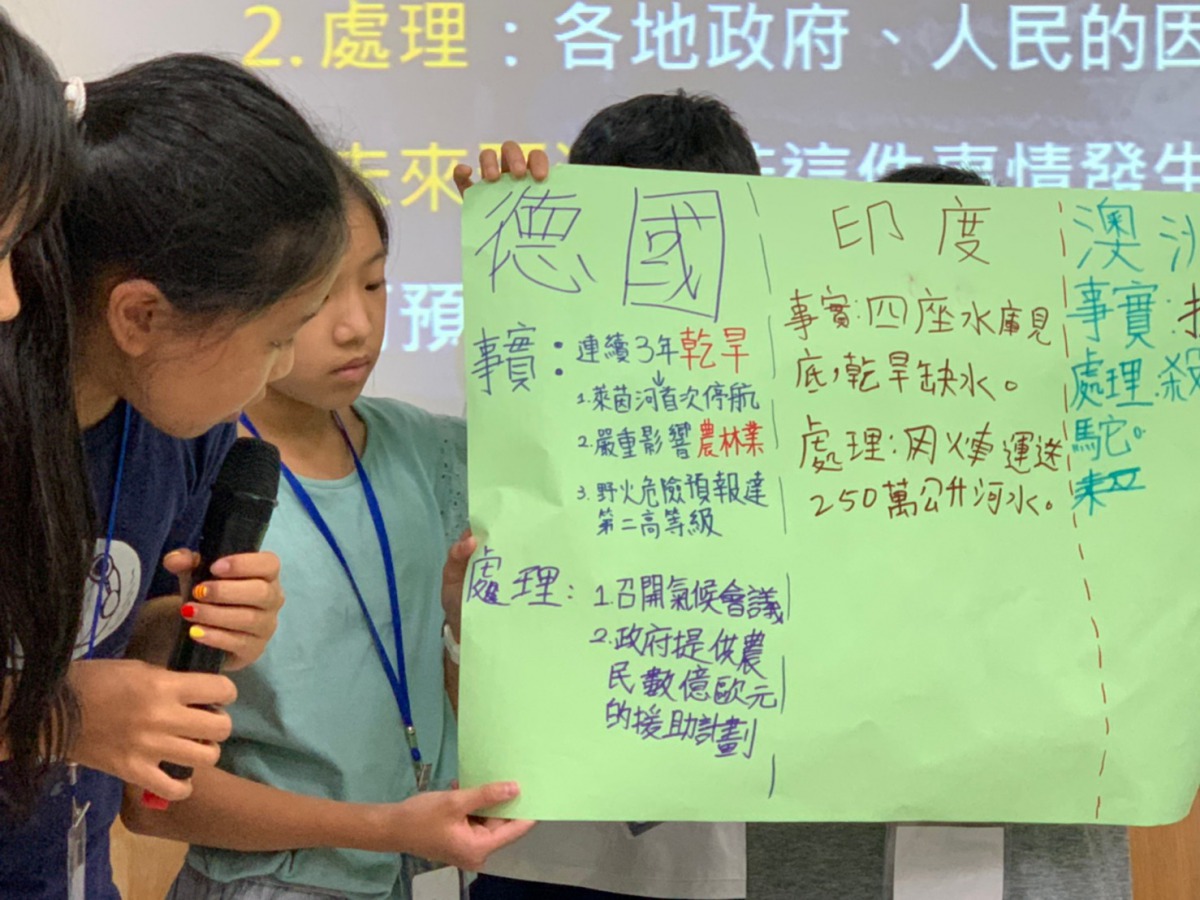 2. 處理：各地政府、人民的因
未來
這件事情發生
預
德國
事實：連續3年乾旱
1.萊茵河首次停航
2.嚴重影響農林業
3.野火危險預報達
第二高等級
處理：1.召開氣候會議
2.政府提供農
民數億歐元
的援助計劃
印度
事實：四座水庫見
底，乾旱缺水。
處理：用火車運送
250萬公升河水。
澳洲
事實：
處理.殺
駝。